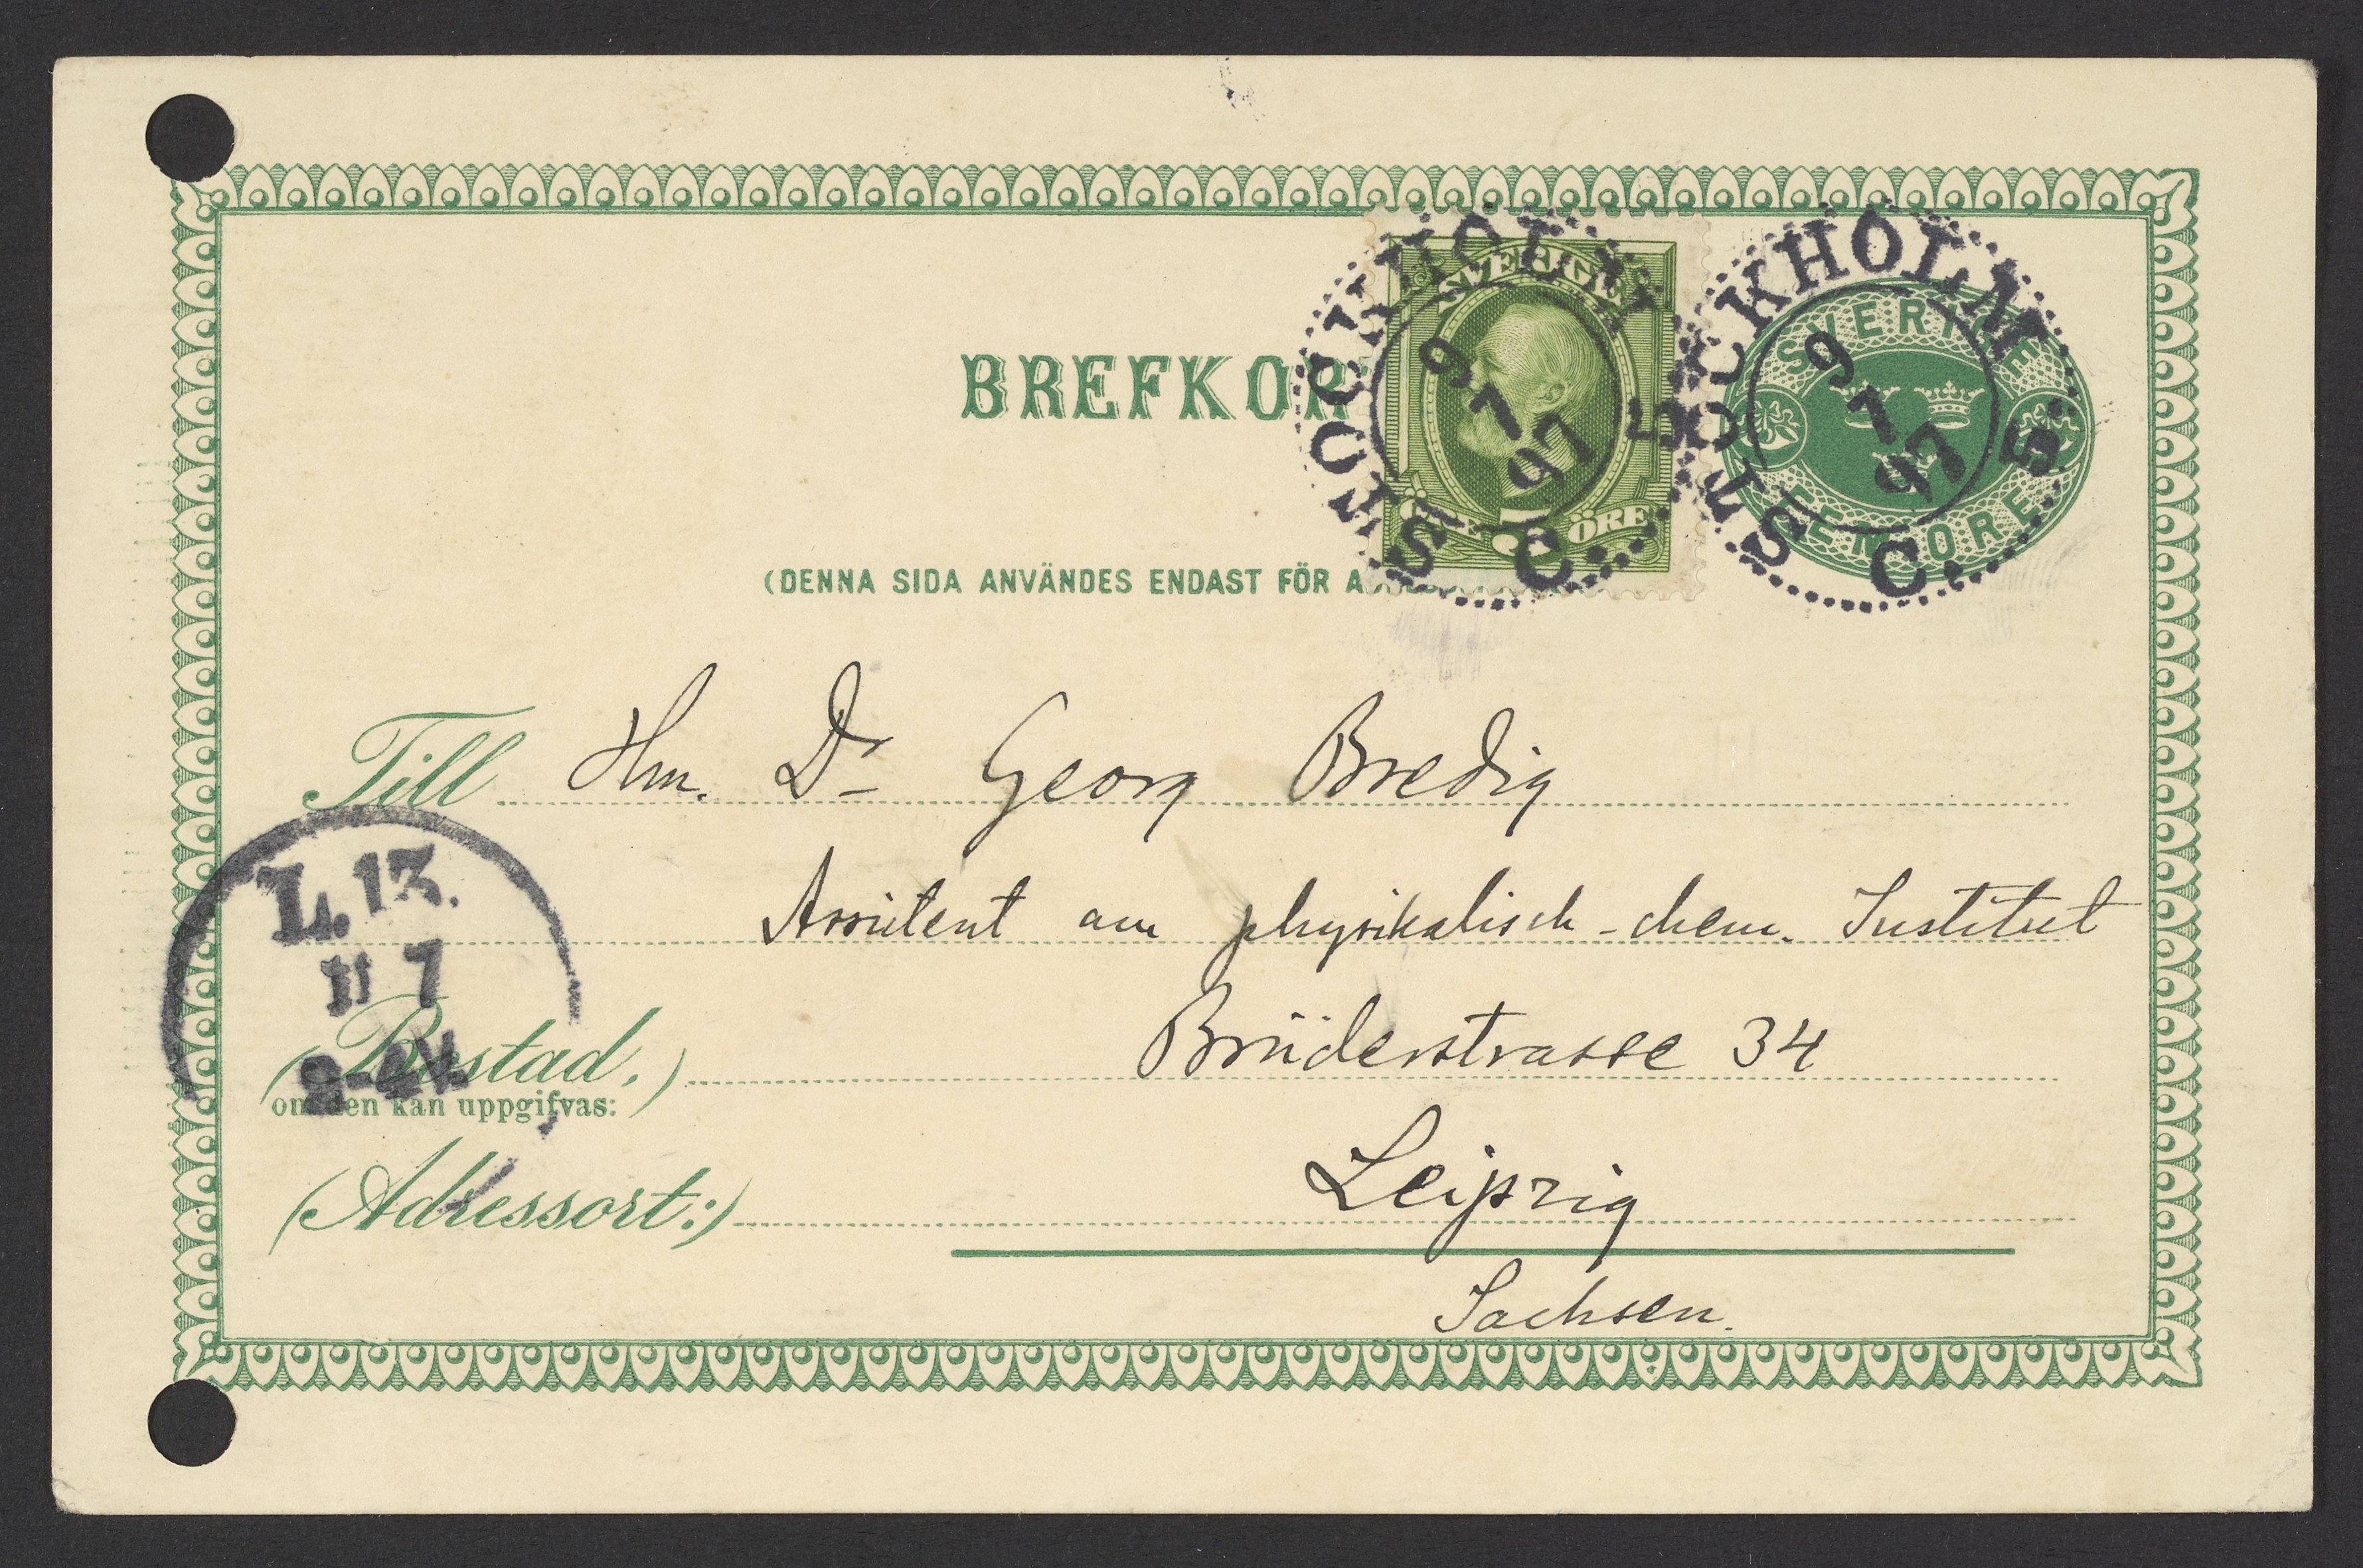 BREFKOR
SVERIGE
ÖRE 5 ÖRE
SVERIGE
FEM ÖRE
STOCKHOLM
9
7
97
C
STOCKHOLM 5
9
7
97
C
(DENNA SIDA ANVÄNDES ENDAST FÖR
Till Hrn. Dr Georg Bredig
Assistent am physikalisch-chem. Institut
L. 13.
11 7
Brüderstrasse 34
(Bostad,)
om den kan uppgifvas:
(Adressort:) Leipzig
Sachsen.